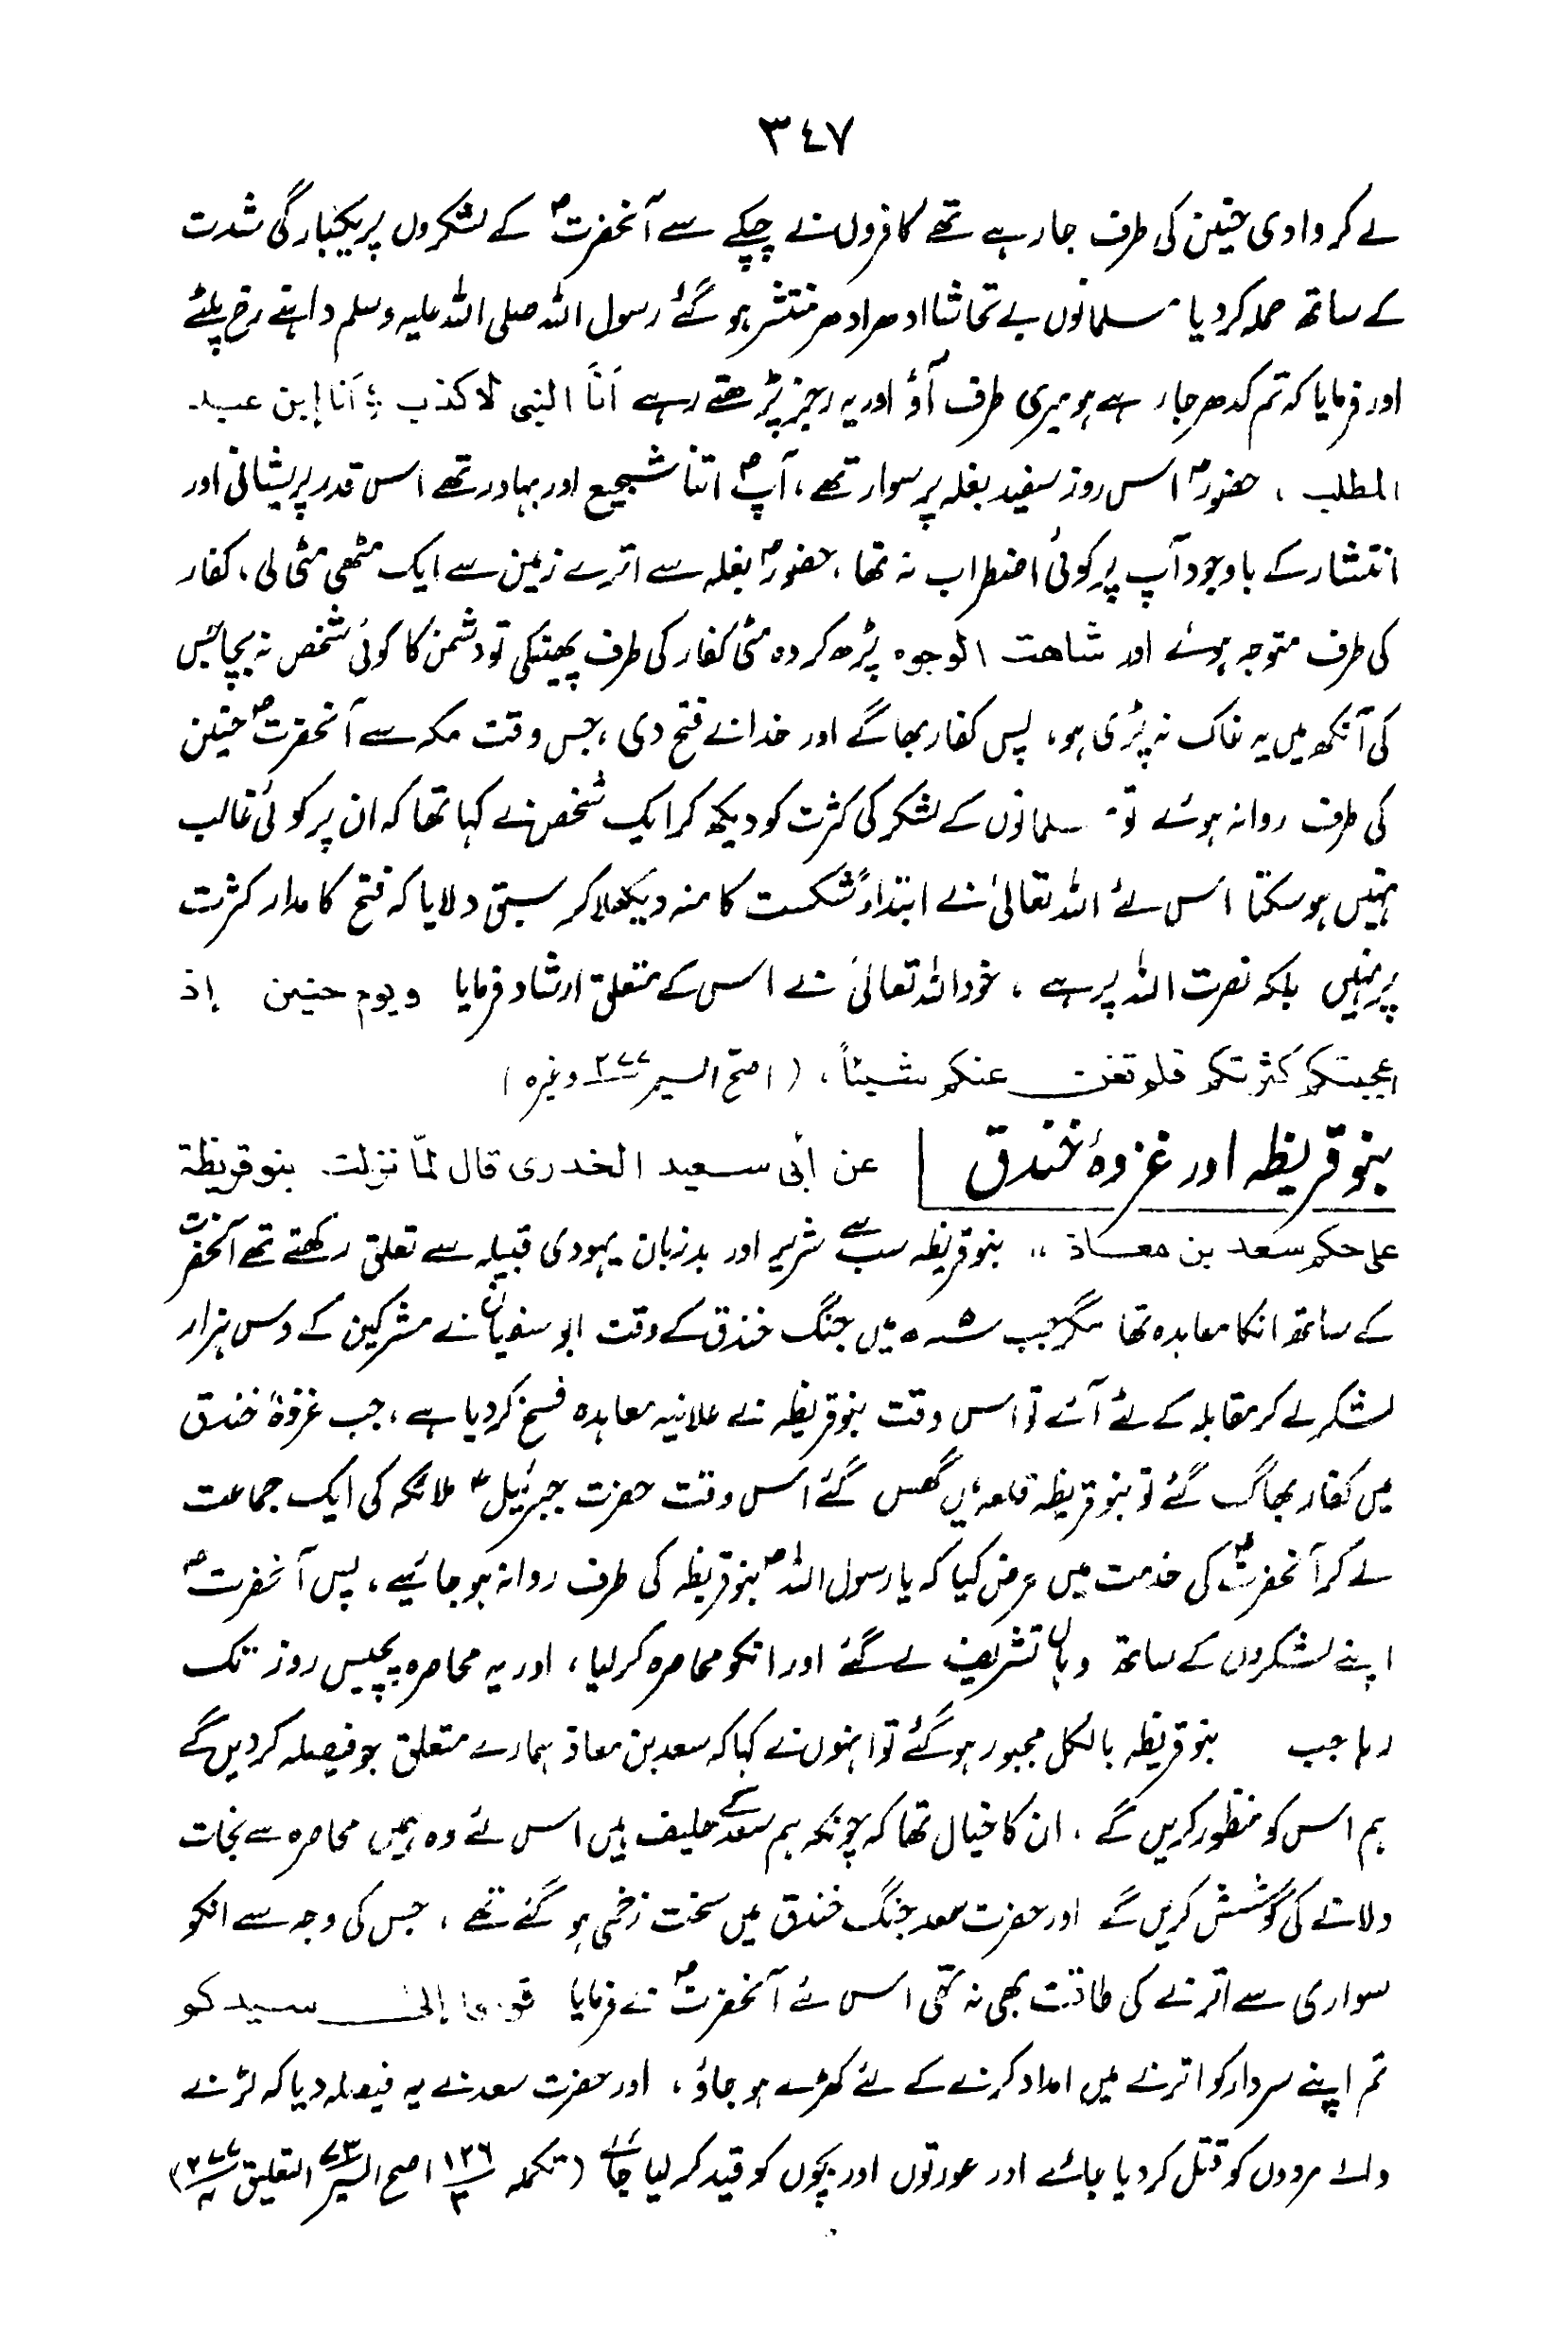 ٣٤٧
لے کر وادی حنین کی طرف جا رہے تھے کافروں نے چپکے سے آنحضرتؐ کے لشکروں پر یکبارگی شدت
کے ساتھ حملہ کر دیا مسلمانوں بے تحاشا ادھر ادھر منتشر ہو گئے رسول اللہ صلی اللہ علیہ وسلم داہنے رخ پلٹے
اور فرمایا کہ تم کدھر جا رہے ہو میری طرف آؤ اور یہ رجز پڑھتے رہے أنا النبی لا کذب ؛ أنا إبن عبد
المطلب ، حضورؐ اس روز سفید بغلہ پر سوار تھے ، آپؐ اتنا شجیع اور بہادر تھے اس قدر پریشانی اور
انتشار کے باوجود آپ پر کوئی اضطراب نہ تھا ، حضورؐ بغلہ سے اترے زمین سے ایک مٹھی مٹی لی ، کفار
کی طرف متوجہ ہوئے اور شاهت الوجوه پڑھ کر وہ مٹی کفار کی طرف پھینکی تو دشمن کا کوئی شخص نہ بچا جس
کی آنکھ میں یہ خاک نہ پڑی ہو ، پس کفار بھاگے اور خدا نے فتح دی ، جس وقت مکہ سے آنحضرتؐ حنین
کی طرف روانہ ہوئے تو مسلمانوں کے لشکر کی کثرت کو دیکھ کر ایک شخص نے کہا تھا کہ ان پر کوئی غالب
نہیں ہو سکتا اس لئے اللہ تعالیٰ نے ابتداءً شکست کا منہ دیکھلا کر سبق دلایا کہ فتح کا مدار کثرت
پر نہیں بلکہ نصرت اللہ پر ہے ، خود اللہ تعالیٰ نے اس کے متعلق ارشاد فرمایا ویوم حنین إذ
اعجبتکم کثرتکم فلم تغن عنکم شیئاً ، ( اصح السیر ٢٧٧ وغیرہ )
بنو قریظہ اور غزوۂ خندق عن أبی سعید الخدری قال لمّا نزلت بنو قریظة
علی حکم سعد بن معاذ ،، بنو قریظہ سب سے شریر اور بدزبان یہودی قبیلہ سے تعلق رکھتے تھے آنحضرتؐ
کے ساتھ انکا معاہدہ تھا مگر جب ۵ ھ میں جنگ خندق کے وقت ابو سفیان نے مشرکین کے دس ہزار
لشکر لے کر مقابلہ کے لئے آئے تو اس وقت بنو قریظہ نے علانیہ معاہدہ فسخ کر دیا ہے ، جب غزوۂ خندق
میں کفار بھاگ گئے تو بنو قریظہ قلعہ میں گھس گئے اس وقت حضرت جبرئیلؑ ملائکہ کی ایک جماعت
لے کر آنحضرتؐ کی خدمت میں عرض کیا کہ یا رسول اللہؐ بنو قریظہ کی طرف روانہ ہو جائیے ، پس آنحضرتؐ
اپنے لشکروں کے ساتھ وہاں تشریف لے گئے اور انکو محاصرہ کر لیا ، اور یہ محاصرہ پچیس روز تک
رہا جب بنو قریظہ بالکل مجبور ہو گئے تو انہوں نے کہا کہ سعد بن معاذ ہمارے متعلق جو فیصلہ کر دیں گے
ہم اس کو منظور کریں گے ، ان کا خیال تھا کہ چونکہ ہم سعد کے حلیف ہیں اس لئے وہ ہمیں محاصرہ سے نجات
دلانے کی کوشش کریں گے اور حضرت سعد جنگ خندق میں سخت زخمی ہو گئے تھے ، جس کی وجہ سے انکو
سواری سے اترنے کی طاقت بھی نہ تھی اس لئے آنحضرتؐ نے فرمایا قوموا إلی سیدکم
تم اپنے سردار کو اترنے میں امداد کرنے کے لئے کھڑے ہو جاؤ ، اور حضرت سعد نے یہ فیصلہ دیا کہ لڑنے
والے مردوں کو قتل کر دیا جائے اور عورتوں اور بچوں کو قید کر لیا جائے ( تکملہ ١٢٦/٣ اصح السیر التعلیق )